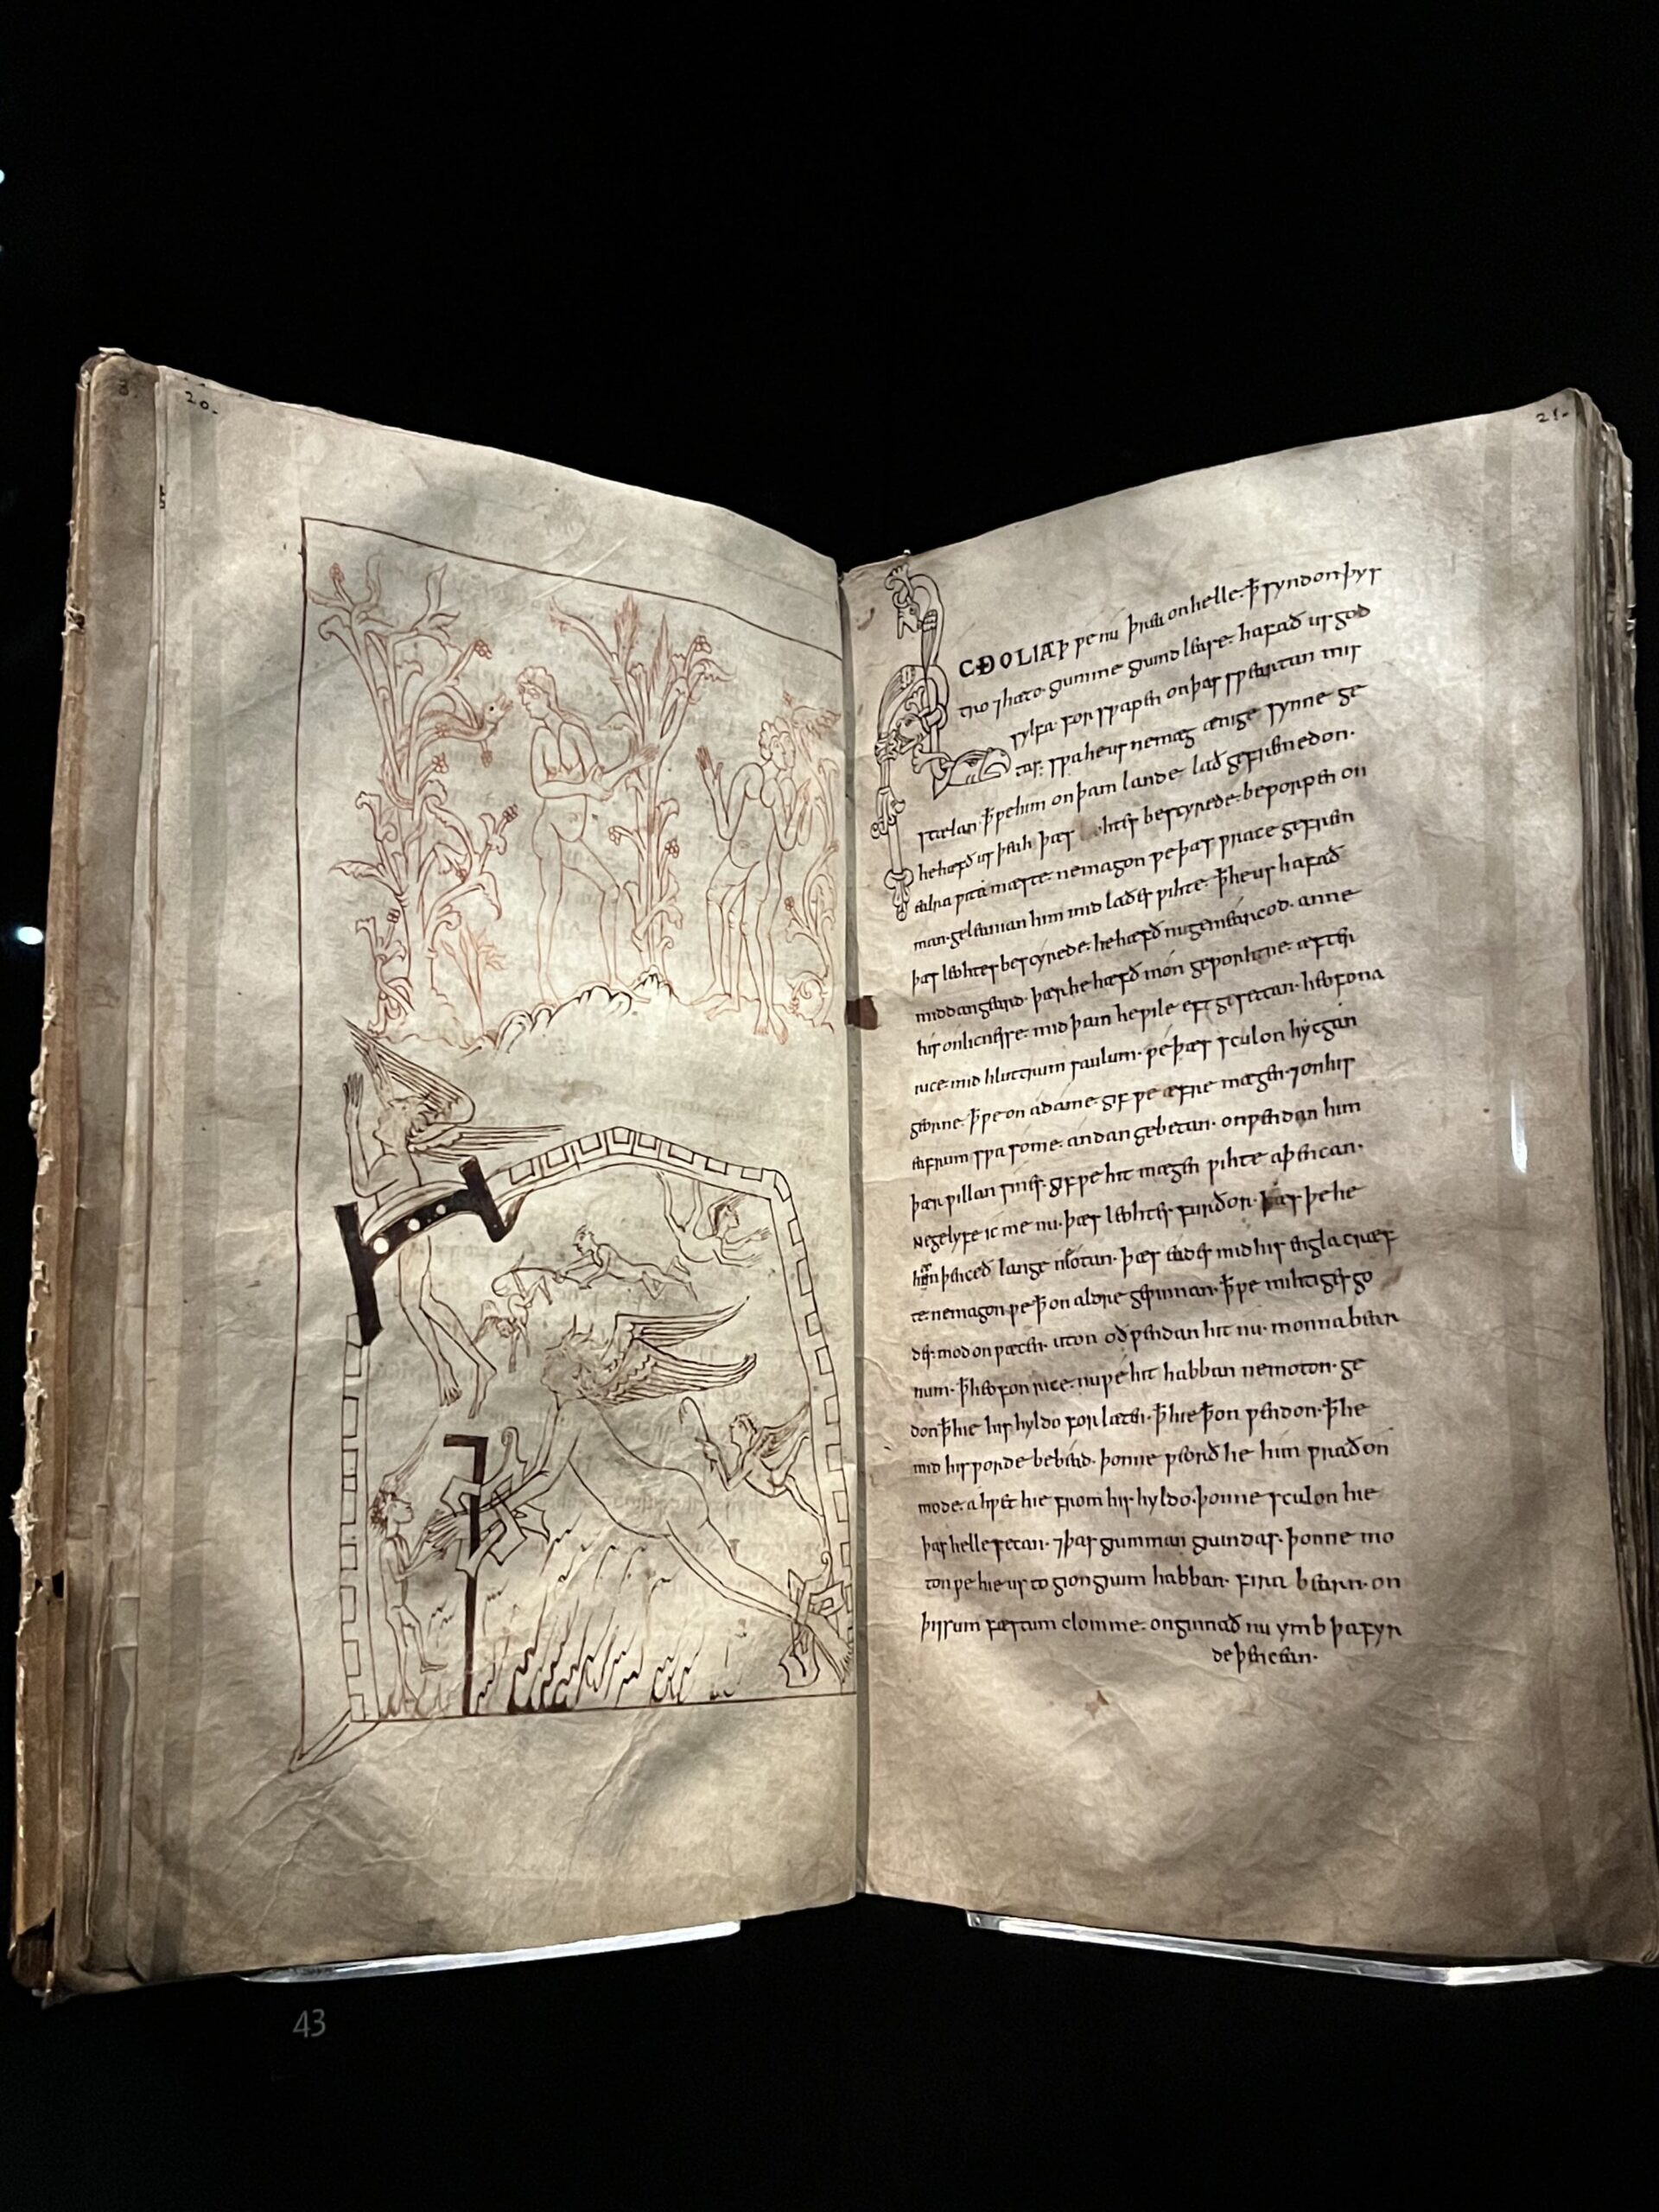 20.
21.
ǷE ÐOLIAÞ ƿe nu þrea on helle. ꝥ syndon þys
tro ⁊ hæto. grimme grund lease. hafað us god
sylfa. for sƿapen on þas sƿeartan mis
tas. sƿa he us ne mæg ænige synne ge
stælan. ꝥ ƿe him on þam lande lað gefremedon.
he hæfð us þeah þæs htes bescyrede. beƿorpen on
ealra ƿita mæste. ne magon ƿe þæs ƿrace gefrem
man. geleanian him mid laðes ƿihte. ꝥ he us hafað
þæs leohtes bescyrede. he hæfð nu gemearcod. anne
middangeard. þær he hæfð món geƿorhtne. æfter
his onlicnesse. mid þam he ƿile eft gesettan. heofona
rice. mid hluttrum saulum. ƿe þæs sculon hycgan
georne. ꝥ ƿe on adame. gif ƿe æfre mægen. ⁊ on his
eafrum sƿa some. andan gebetan. onƿendan him
þær ƿillan sines. gif ƿe hit mægen ƿihte aþencan.
Ne gelyfe ic me nu. þæs leohtes furðor. þæs þe he
him þenceð lange niotan. þæs eades mid his engla cræf
te. ne magon ƿe ꝥ on aldre geƿinnan. ꝥ ƿe mihtiges go
des. mod onƿæcen. uton oðƿendan hit nu. monna bear
num. ꝥ heofon rice. nu ƿé hit habban ne moton. ge
don ꝥ hie his hyldo forlæten. ꝥ hie ꝥ on ƿendon. ꝥ he
mid his ƿorde bebead. þonne ƿeorð he him ƿrað on
mode. ahƿet hie from his hyldo. þonne sculon hie
þas helle secan. ⁊ þas grimman grundas. þonne mo
ton ƿe hie us to giongrum habban. fira bearn. on
þissum fæstum clomme. onginnað nu ymb þa fyr
de þencean.
43